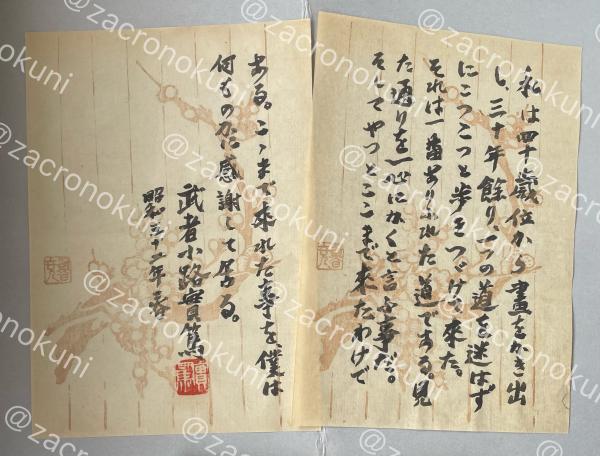 私は四十歳位から畫をかき出
し、三十年餘り、一つの道を迷はず
にこつこつと歩きつゞけて来た。
それは一番ありふれた道である見
た通りを一心にかくと言ふ事だ。
そしてやつとここまで来たわけで
ある。こゝまで来れた事を、僕は
何ものかに感謝して居る。
武者小路實篤
實篤
昭和三十二年
@zacronokuni